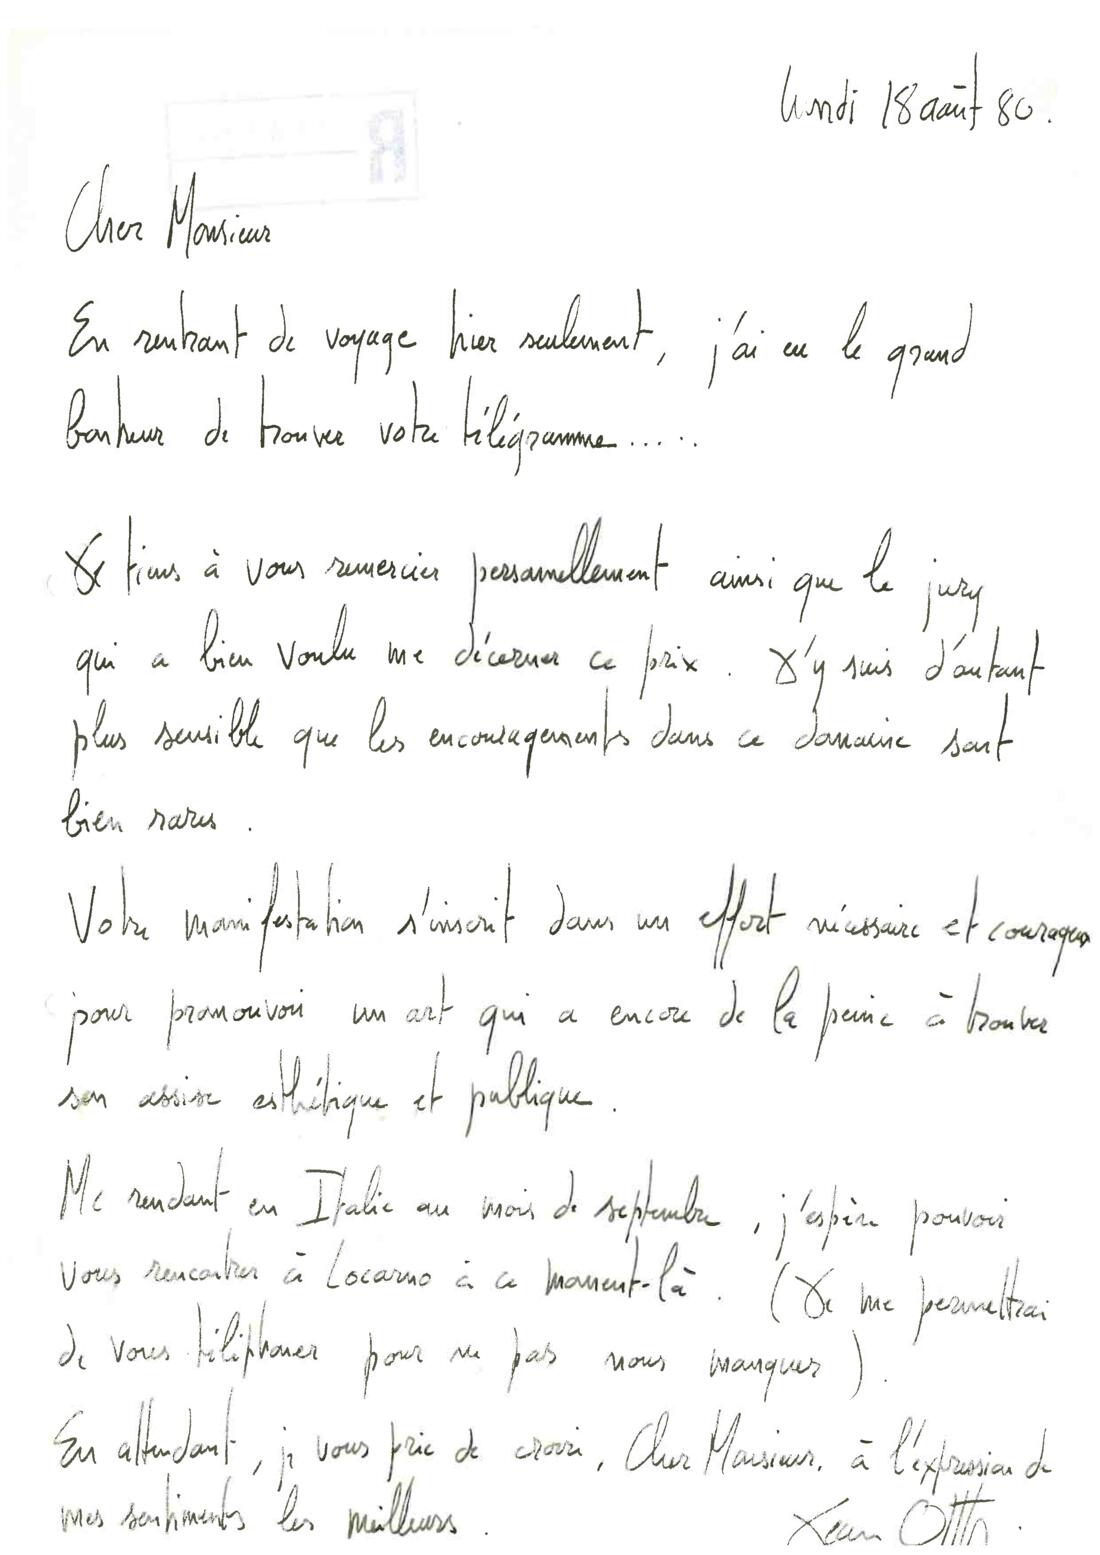 lundi 18 août 80.
Cher Monsieur
En rentrant de voyage hier seulement, j'ai eu le grand
bonheur de trouver votre télégramme.....
Je tiens à vous remercier personnellement ainsi que le jury
qui a bien voulu me décerner ce prix. J'y suis d'autant
plus sensible que les encouragements dans ce domaine sont
bien rares.
Votre manifestation s'inscrit dans un effort nécessaire et courageux
pour promouvoir un art qui a encore de la peine à trouver
son assise esthétique et publique.
Me rendant en Italie au mois de septembre, j'espère pouvoir
vous rencontrer à Locarno à ce moment-là. (Je me permettrai
de vous téléphoner pour ne pas nous manquer).
En attendant, je vous prie de croire, Cher Monsieur, à l'expression de
mes sentiments les meilleurs.
Jean Otth.